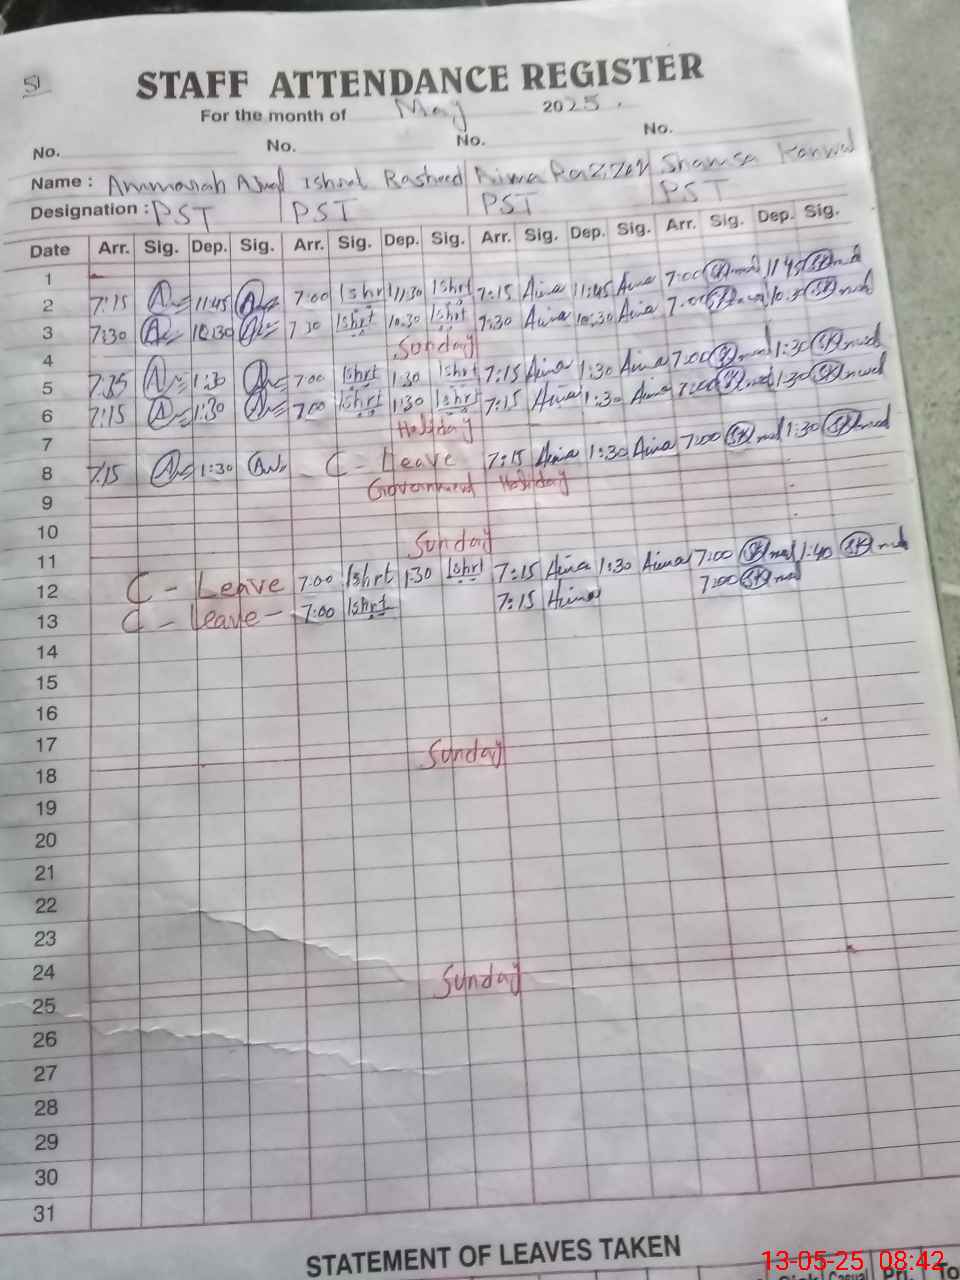 51
STAFF ATTENDANCE REGISTER
For the month of May 2025.
No. No. No. No.
Name : Ammarah Ishrat Rasheed Shamsa Kanwal
Designation : PST PST PST PST
Date Arr. Sig. Dep. Sig. Arr. Sig. Dep. Sig. Arr. Sig. Dep. Sig. Arr. Sig. Dep. Sig.
1
2 7:15 11:45 7:00 Ishrt 11:30 Ishrt 7:15 Aima 11:45 Aima 7:00 11:45
3 7:30 10:30 7:30 Ishrt 10:30 Ishrt 7:30 Aima 10:30 Aima 7:00
4 Sunday
5 1:30 7:00 Ishrt 1:30 Ishrt 7:15 Aima 1:30 Aima 7:00 1:30
6 7:15 1:30 7:00 Ishrt 1:30 Ishrt 7:15 Aima 1:30 Aima 7:00 1:30
7 Holiday
8 7:15 1:30 C - Leave 7:15 Aima 1:30 Aima 7:00 1:30
9 Government Holiday
10
11 Sunday
12 C - Leave 7:00 Ishrt 1:30 Ishrt 7:15 Aima 1:30 Aima 7:00 1:40
13 C - Leave - 7:00 Ishrt 7:15 Aima 7:00
14
15
16
17
18 Sunday
19
20
21
22
23
24
25 Sunday
26
27
28
29
30
31
STATEMENT OF LEAVES TAKEN
13-05-25 08:42
Casual Pri. To